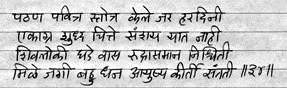 पठण पवित्र स्तोत्र केले जर हरदिनी
एकाग्र शुध्द चित्ते संशय यात नाही
शिवलोकी घडे वास रुद्रासमान निश्चिती
मिळे जगी बहु धन आयुष्य कीर्ती संतती ॥३४॥